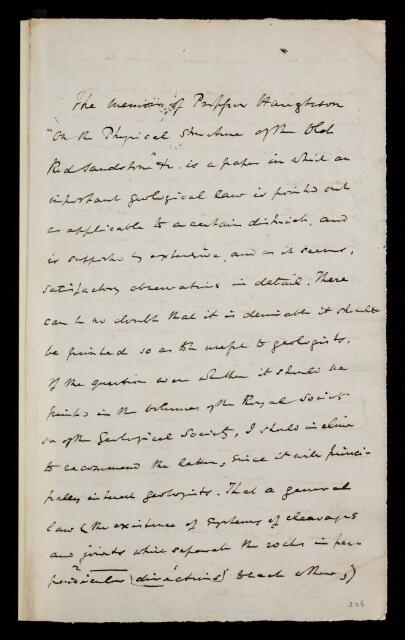 The memoir of Professor Haughton
"On the Physical Structure of the Old
Red Sandstone" &c. is a paper in which an
important geological law is pointed out
as applicable to a certain district, and
is supported by extensive, and as it seems,
satisfactory observations in detail. There
can be no doubt that it is desirable it should
be printed so as to be useful to geologists.
If the question were whether it should be
printed in the volumes of the Royal Society
or of the Geological Society, I should incline
to recommend the latter, since it will princi-
pally interest geologists. That a general
law (the existence of systems of cleavages
and joints which separate the rocks in per-
pendicular directions to each other,)
206